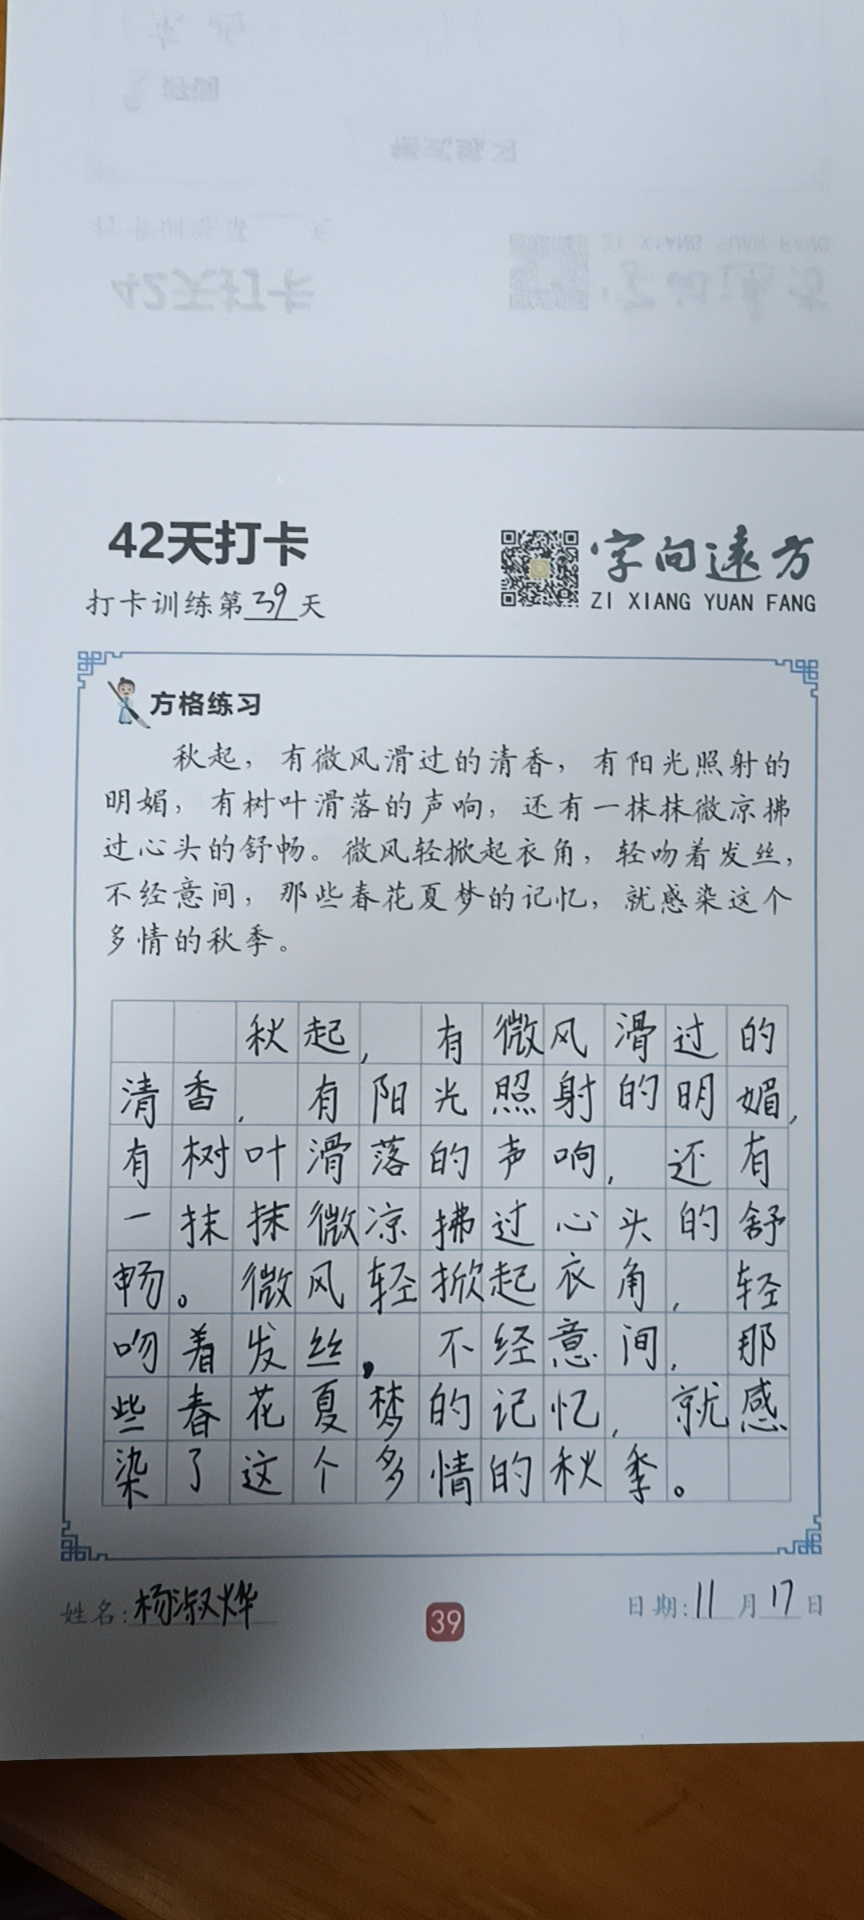 42天打卡
字向远方
打卡训练第39天
ZI XIANG YUAN FANG
方格练习
秋起，有微风滑过的清香，有阳光照射的
明媚，有树叶滑落的声响，还有一抹抹微凉拂
过心头的舒畅。微风轻掀起衣角，轻吻着发丝，
不经意间，那些春花夏梦的记忆，就感染这个
多情的秋季。
秋起，有微风滑过的
清香，有阳光照射的明媚，
有树叶滑落的声响，还有
一抹抹微凉拂过心头的舒
畅。微风轻掀起衣角，轻
吻着发丝，不经意间，那
些春花夏梦的记忆，就感
染了这个多情的秋季。
姓名:杨淑烨
39
日期:11月17日